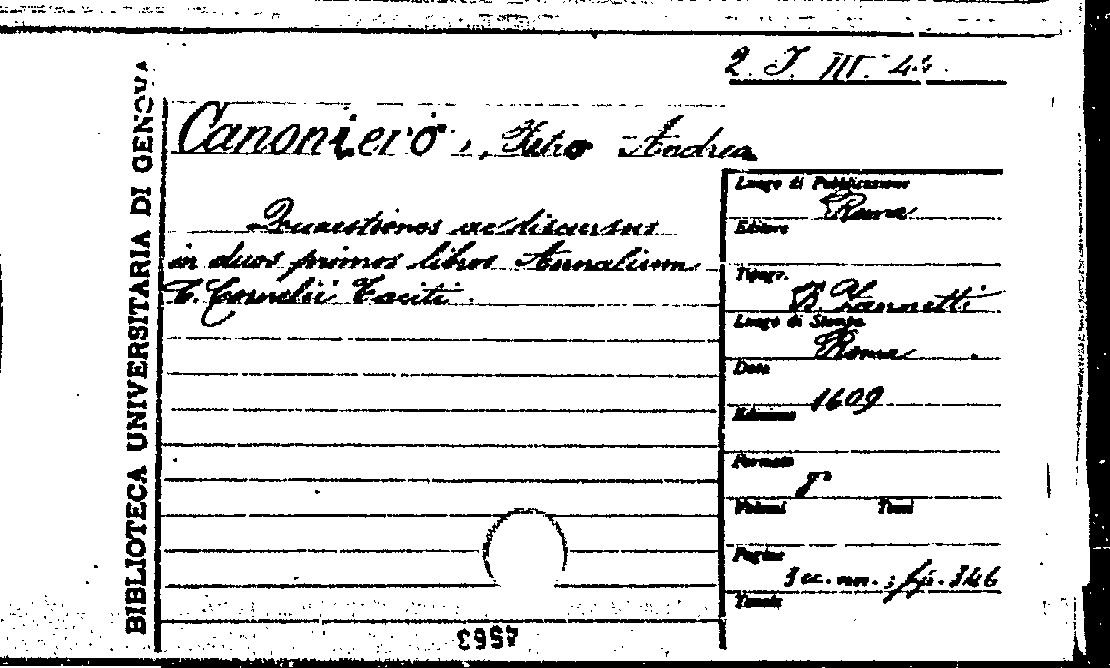 2. I. III. 44.
BIBLIOTECA UNIVERSITARIA DI GENOVA
Canoniero, Pietro Andrea
Quaestiones ac discursus
in duos primos libros Annalium
C. Cornelii Taciti.
Luogo di Pubblicazione
Roma
Editore
Tipogr.
B. Zannetti
Luogo di Stampa
Roma
Data
1609
Edizione
Formato
8°
Volumi Tomi
Pagine
cc. nn.; pp. 346
Tavole
4563